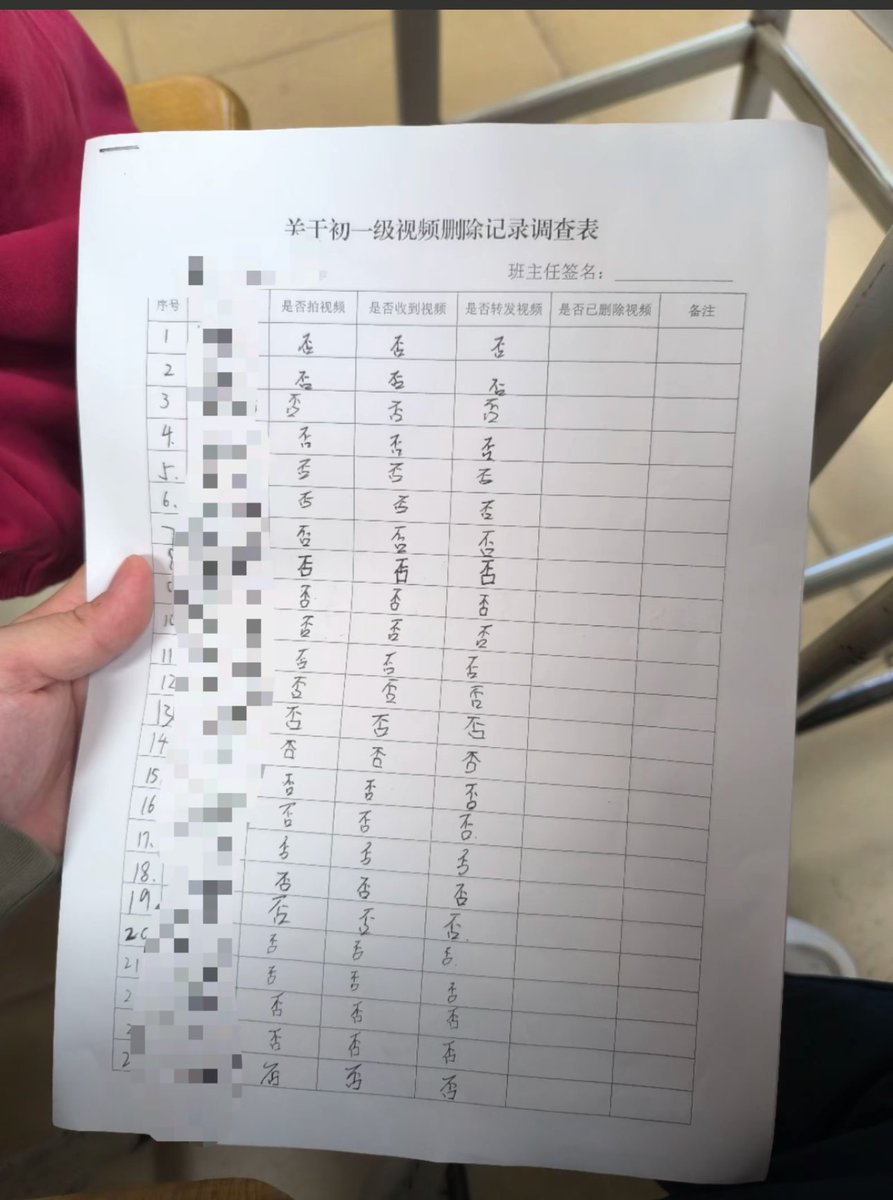 关于初一级视频删除记录调查表
班主任签名：
序号 是否拍视频 是否收到视频 是否转发视频 是否已删除视频 备注
1 否 否 否
2 否 否 否
3 否 否 否
4. 否 否 否
5. 否 否 否
6. 否 否 否
7 否 否 否
8 否 否 否
否 否 否
10 否 否 否
11 否 否 否
12 否 否 否
13 否 否 否
14 否 否 否
15. 否 否 否
16 否 否 否
17. 否 否 否
18. 否 否 否
19. 否 否 否
20 否 否 否
21 否 否 否
2 否 否 否
2 否 否 否
2 否 否 否